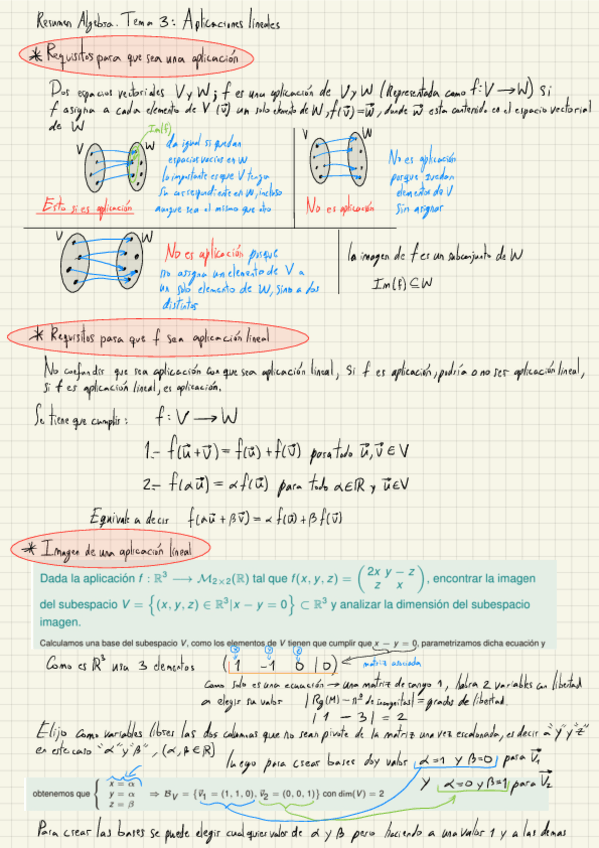 Resumen Algebra. Tema 3: Aplicaciones lineales
* Requisitos para que sea una aplicación
Dos espacios vectoriales V y W ; f es una aplicación de V y W (Representada como f: V → W) si
f asigna a cada elemento de V (v⃗) un solo elemento de W, f(v⃗) = w⃗, donde w⃗ esta contenido en el espacio vectorial
de W
V
Im(f)
W
da igual si quedan
espacios vacios en W
lo importante es que V tenga
su correspondiente en W, incluso
aunque sea el mismo que otro
Esta si es aplicación
V
W
No es aplicación
porque quedan
elementos de V
sin asignar
No es aplicación
V
W
No es aplicación porque
no asigna un elemento de V a
un solo elemento de W, sino a dos
distintos
la imagen de f es un subconjunto de W
Im(f) ⊆ W
* Requisitos para que f sea aplicación lineal
No confundir que sea aplicación con que sea aplicación lineal, Si f es aplicación, podría o no ser aplicación lineal,
si f es aplicación lineal, es aplicación.
Se tiene que cumplir: f: V → W
1.- f(u⃗ + v⃗) = f(u⃗) + f(v⃗) para todo u⃗, v⃗ ∈ V
2.- f(αu⃗) = αf(u⃗) para todo α∈ℝ y u⃗∈V
Equivale a decir f(αu⃗ + βv⃗) = αf(u⃗) + βf(v⃗)
* Imagen de una aplicación lineal
Dada la aplicación f : ℝ³ ⟶ M₂ₓ₂(ℝ) tal que f(x, y, z) = (2x y − z
z x), encontrar la imagen
del subespacio V = {(x, y, z) ∈ ℝ³|x − y = 0} ⊂ ℝ³ y analizar la dimensión del subespacio
imagen.
Calculamos una base del subespacio V, como los elementos de V tienen que cumplir que x − y = 0, parametrizamos dicha ecuación y
Como es ℝ³ usa 3 elementos (1 -1 0 | 0) matriz asociada
como solo es una ecuación → una matriz de rango 1, habra 2 variables con libertad
a elegir su valor |Rg(M) - nº de incognitas| = grados de libertad.
|1 - 3| = 2
Elijo como variables libres las dos columnas que no sean pivote de la matriz una vez escalonada, es decir a "y" y "z"
en este caso "α" y "β", (α, β ∈ ℝ)
luego para crear bases doy valor α=1 y β=0 para v⃗₁
y α=0 y β=1 para v⃗₂
obtenemos que { x = α
y = α
z = β ⇒ B_V = {v⃗₁ = (1, 1, 0), v⃗₂ = (0, 0, 1)} con dim(V) = 2
Para crear las bases se puede elegir cualquier valor de α y β pero haciendo a una valor 1 y a las demas